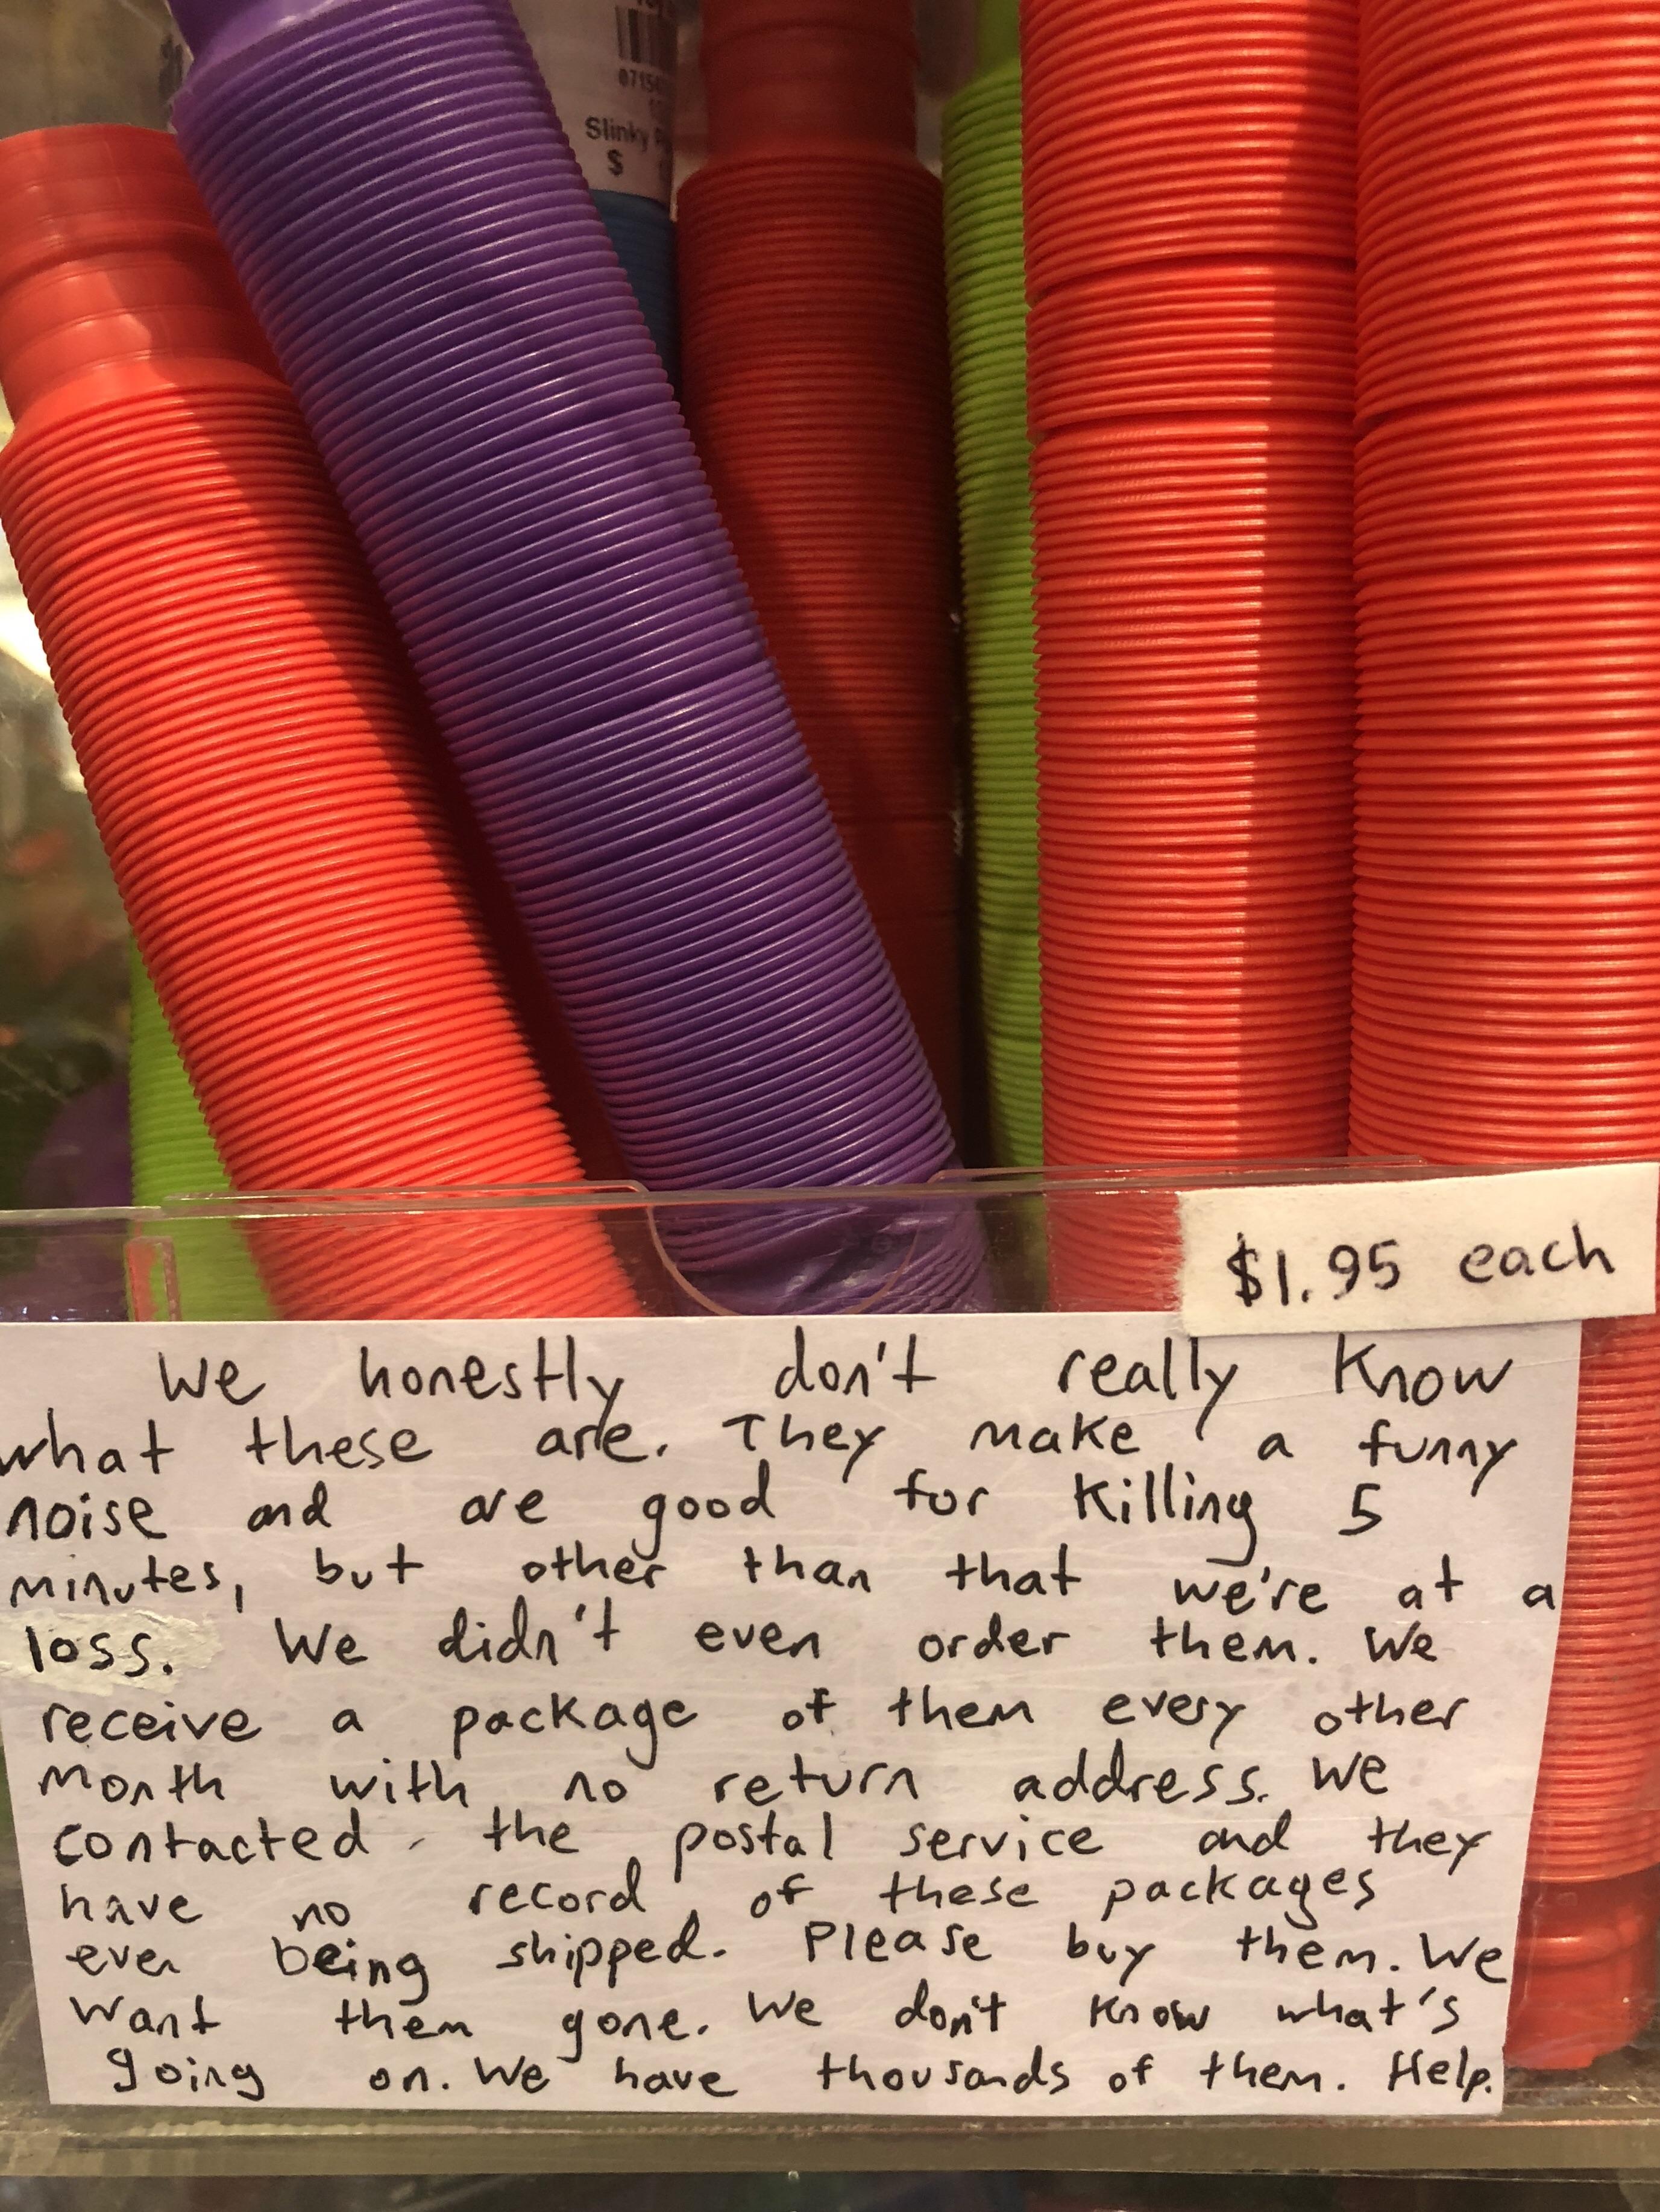 Slinky
$
$1.95 each
We honestly don't really know
what these are. They make a funny
noise and are good for killing 5
minutes, but other than that we're at a
loss. We didn't even order them. We
receive a package of them every other
month with no return address. We
contacted the postal service and they
have no record of these packages
ever being shipped. Please buy them. We
want them gone. We don't know what's
going on. We have thousands of them. Help.